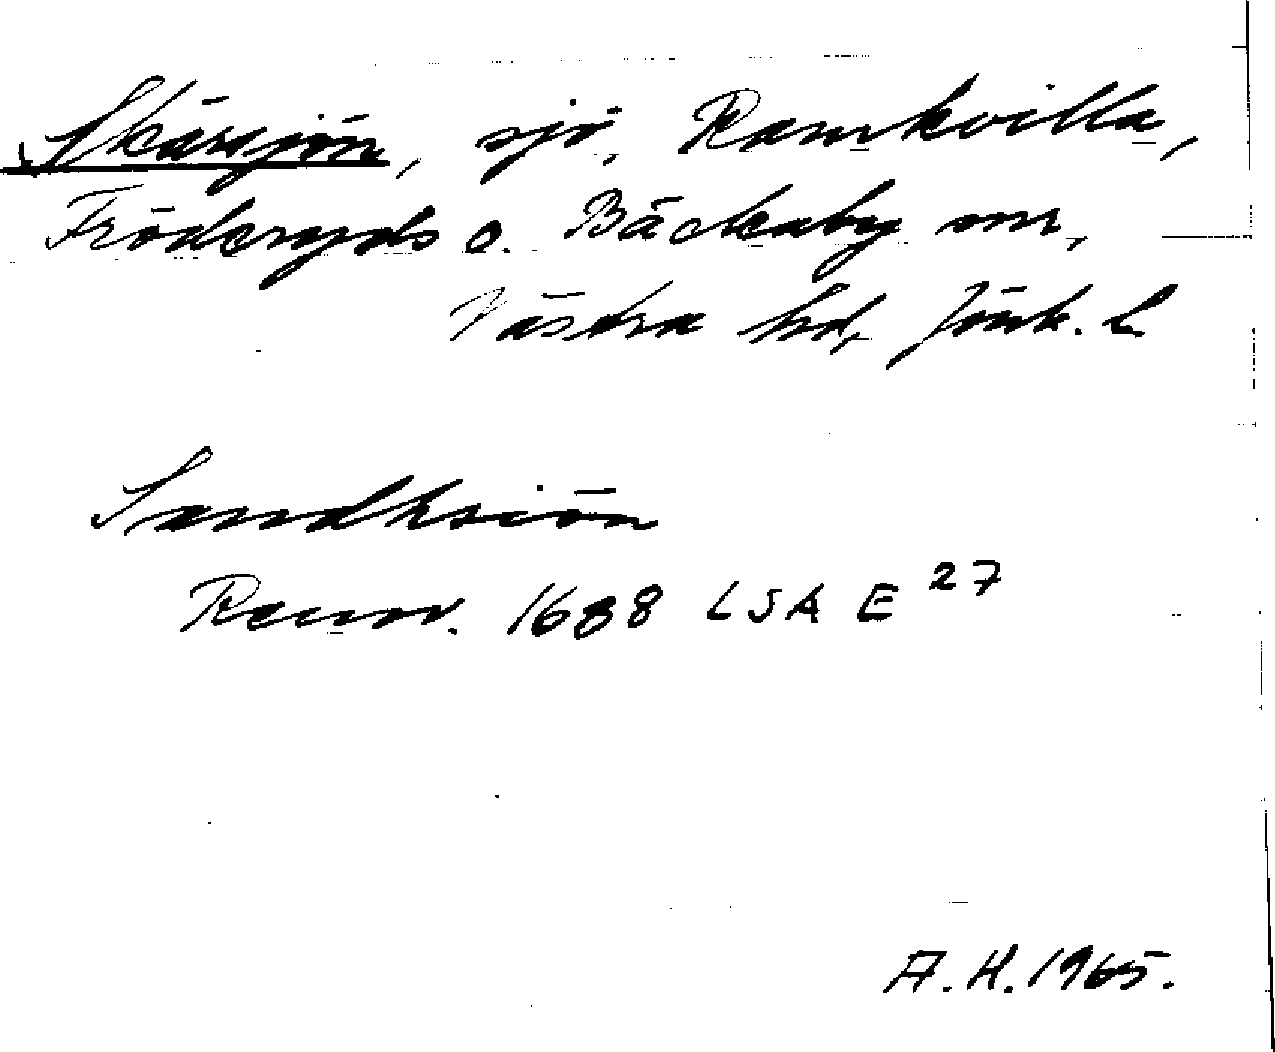 Skärsjön, sjö, Ramkvilla,
Fröderyds o. Bäckaby snr,
Västra hd, Jönk. l
Sandhsiön
Renov. 1688 LSA E 27
A.H. 1965.